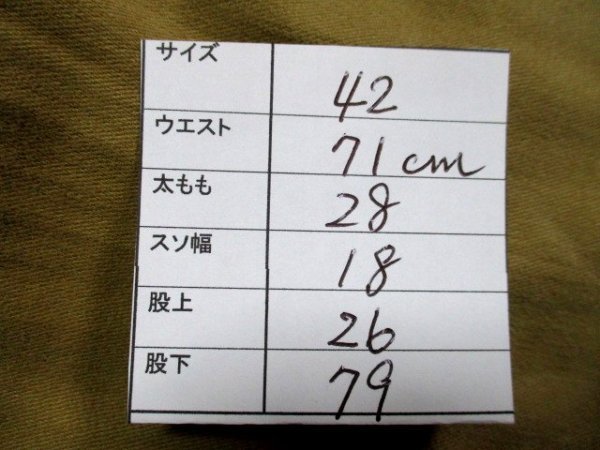 サイズ 42
ウエスト 71cm
太もも 28
スソ幅 18
股上 26
股下 79